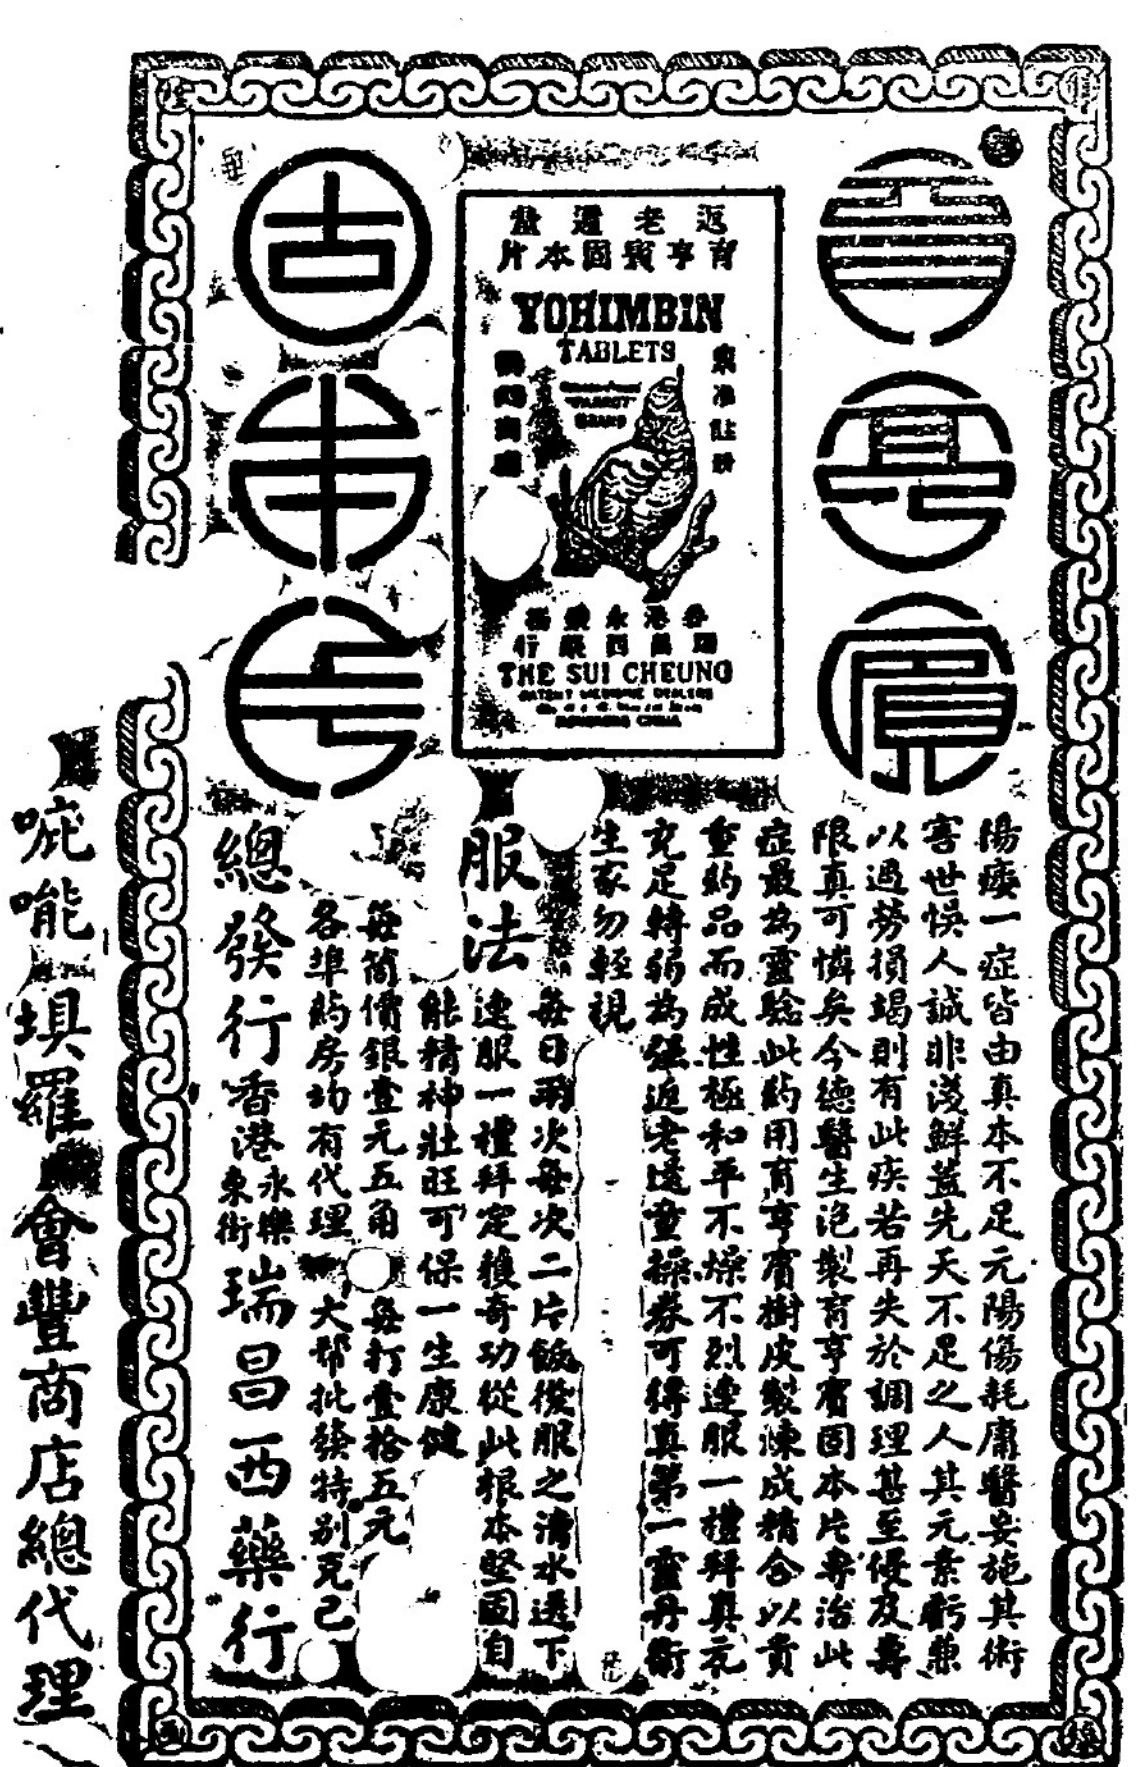 育亨賓
固本片
返老還童
育亨賓固本片
YOHIMBIN
TABLETS
"PARROT"
BRAND
香港永樂街
瑞昌西藥行
THE SUI CHEUNG
PATENT MEDICINE DEALERS
HONGKONG CHINA
陽痿一症皆由真本不足元陽傷耗庸醫妄施其術
害世悞人誠非淺鮮蓋先天不足之人其元素虧兼
以過勞損竭則有此疾若再失於調理甚至促及壽
限真可憐矣今德醫生泡製育亨賓固本片專治此
症最為靈驗此葯用育亨賓樹皮製煉成精合以貴
重葯品而成性極和平不燥不烈連服一禮拜真元
充足轉弱為强返老還童操券可得真第一靈丹衛
生家勿輕視
服法 每日兩次每次二片飯後服之清水送下
連服一禮拜定獲奇功從此根本堅固自
能精神壯旺可保一生康健
每筒價銀壹元五角 每打壹拾五元
各埠葯房均有代理 大幫批發特別克己
總發行香港永樂東街瑞昌西藥行
㕷㘄埧羅會豐商店總代理